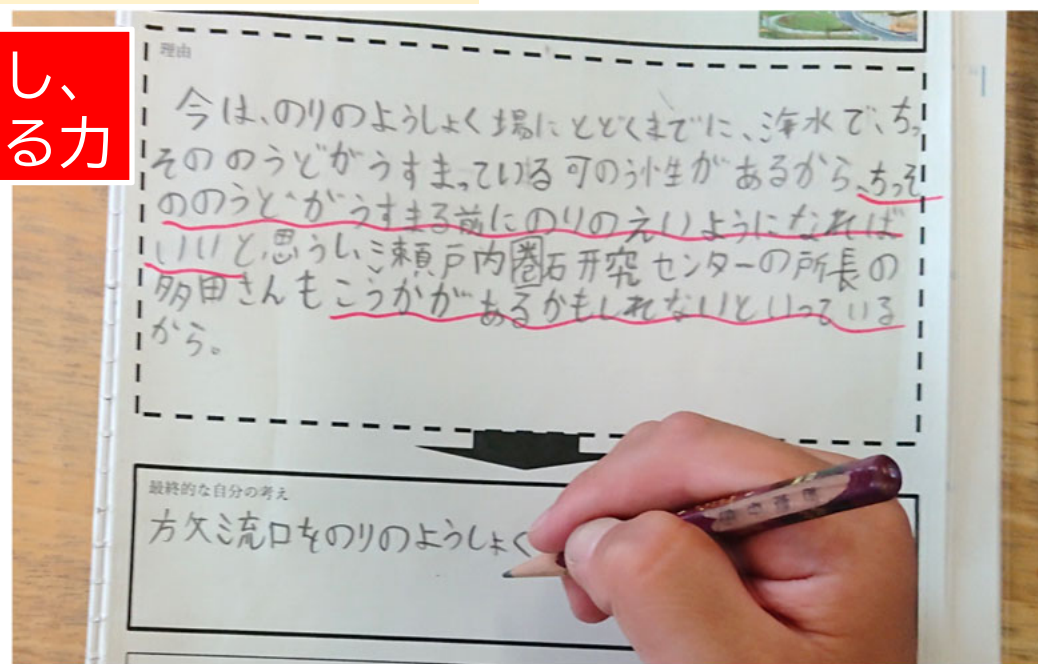 し、
る力
理由
今は、のりのようしょく場にとどくまでに、海水で、ちっ
そののうどがうすまっている可のう性があるから、ちっそ
ののうどがうすまる前にのりのえいようになれば
いいと思うし、瀬戸内圏研究センターの所長の
多田さんもこうかがあるかもしれないといっている
から。
最終的な自分の考え
放流口をのりのようしょく